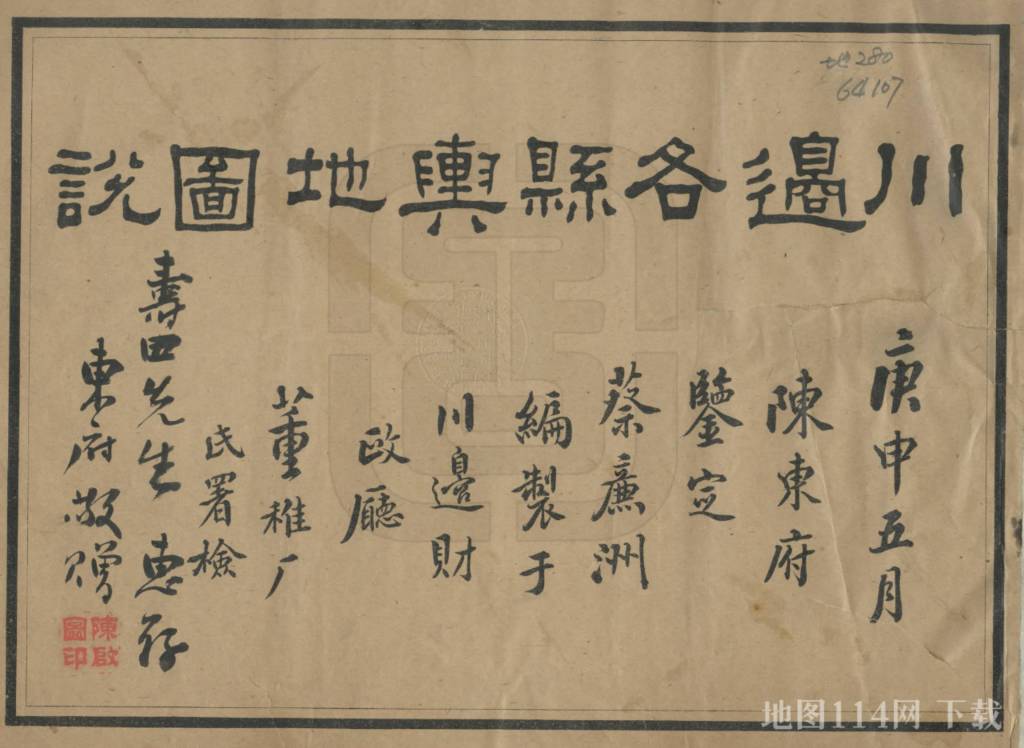 地280
64107
川邊各縣輿地圖說
庚申五月
陳東府
鑒定
蔡廉洲
編製于
川邊財
政廳
董稚厂
氏署檢
壽田先生惠存
東府敬贈
陳啟
圖印
地图114网 下载